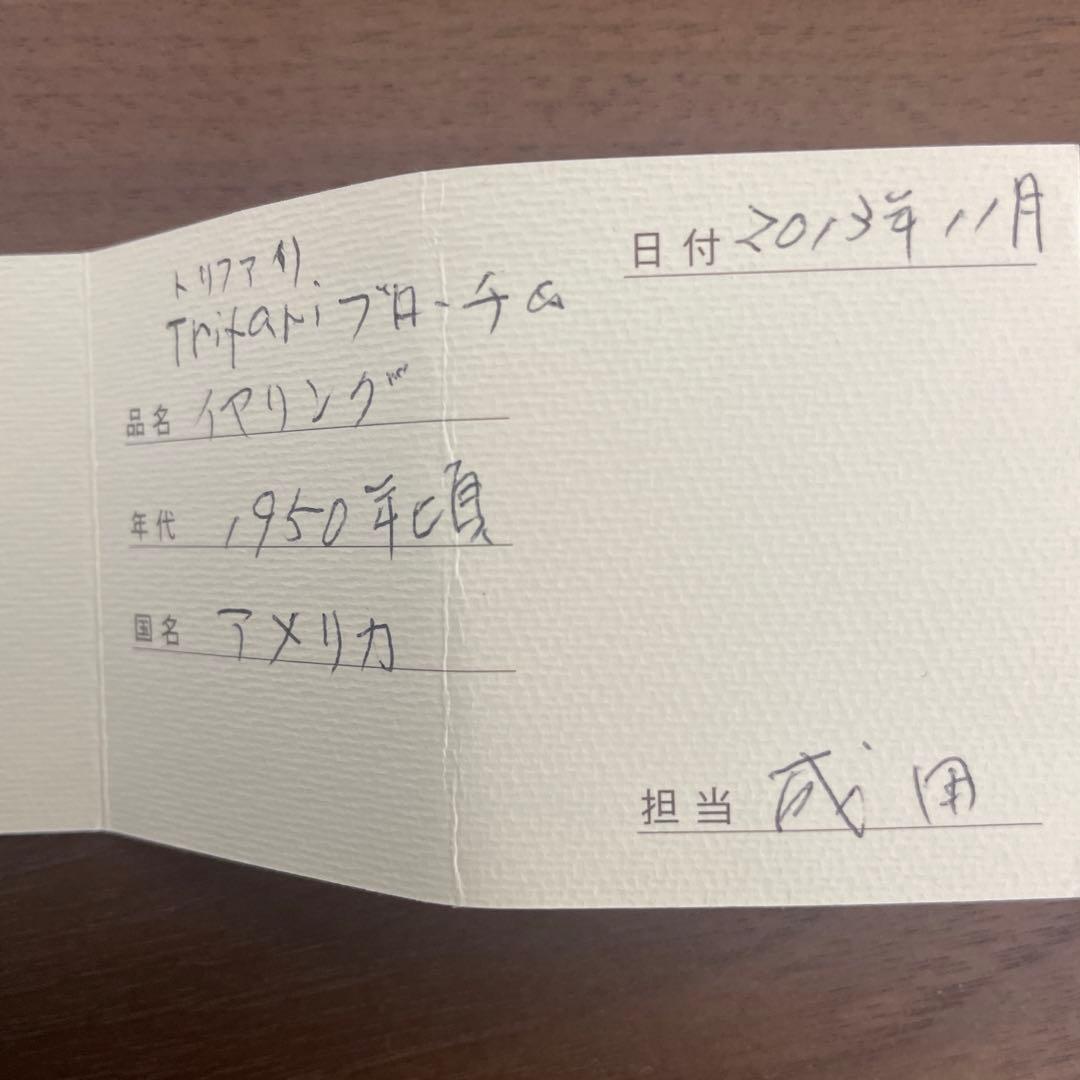 トリファリ
Trifari ブローチ&
品名 イヤリング
年代 1950年頃
国名 アメリカ
日付 2013年11月
担当 成田